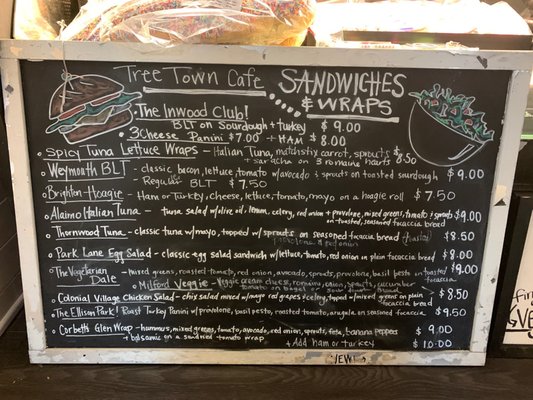 Tree Town Cafe
SANDWICHES
& WRAPS
The Inwood Club!
BLT on Sourdough + turkey $9.00
3 Cheese Panini $7.00 + HAM $8.00
Spicy Tuna Lettuce Wraps - Italian Tuna, matchstix carrot, sprouts $8.50
+ on 3 romaine hearts
Weymouth BLT - classic bacon, lettuce tomato w/ avocado & sprouts on toasted sourdough $9.00
Regular BLT $7.50
Brighton Hoagie - Ham or Turkey, cheese, lettuce, tomato, mayo on a hoagie roll $7.50
Alaimo Italian Tuna - tuna salad w/ olive oil, lemon, celery, red onion + provolone, mixed greens, tomato + sprouts $9.00
on toasted, seasoned focaccia bread
Thornwood Tuna - classic tuna w/ mayo, topped w/ sprouts on seasoned focaccia bread (toasted) $8.50
Park Lane Egg Salad - classic egg salad sandwich w/ lettuce, tomato, red onion on plain focaccia bread $8.00
The Vegetarian Dale - mixed greens, roasted tomato, red onion, avocado, sprouts, provolone, basil pesto on toasted focaccia $9.00
Milford Veggie - Veggie cream cheese, romaine, onion, sprouts, cucumber
tomato on bagel or
Colonial Village Chicken Salad - chix salad mixed w/ mayo red grapes + celery, topped w/ mixed greens on plain focaccia bread $8.50
The Ellison Park! Roast Turkey Panini w/ provolone, basil pesto, roasted tomato, arugula, on seasoned focaccia $9.50
Corbetts Glen Wrap - hummus, mixed greens, tomato, avocado, red onion, sprouts, feta, banana peppers $9.00
+ balsamic on a sundried tomato wrap. + Add ham or turkey $10.00